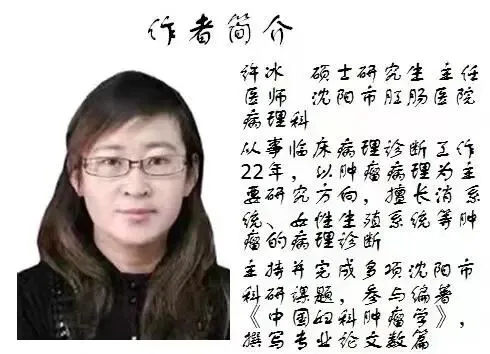 作者简介
许冰 硕士研究生 主任
医师 沈阳市肛肠医院
病理科
从事临床病理诊断工作
22年，以肿瘤病理为主
要研究方向，擅长消系
统、女性生殖系统等肿
瘤的病理诊断
主持并完成多项沈阳市
科研课题，参与编著
《中国妇科肿瘤学》，
撰写专业论文数篇